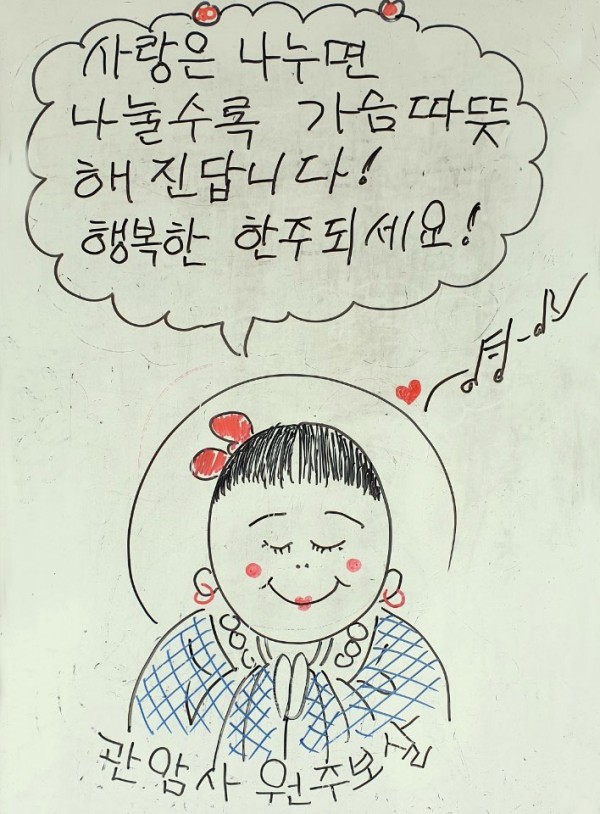 사랑은 나누면
나눌수록 가슴따뜻
해 진답니다!
행복한 한주되세요!
관암사 원주보살